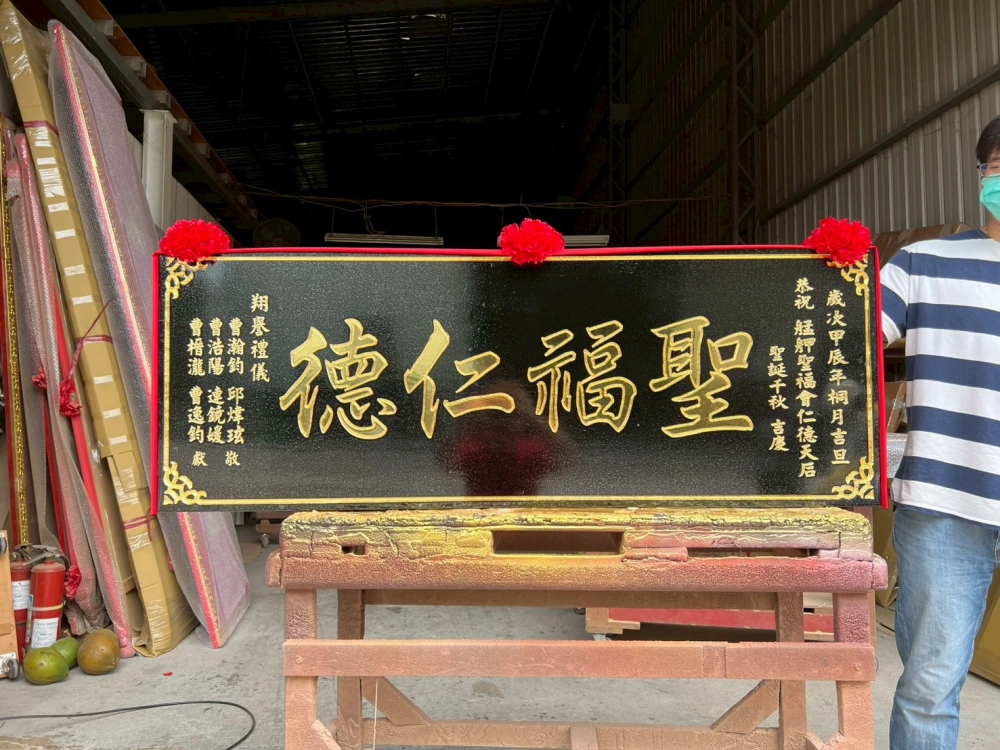 歲次甲辰年桐月吉旦
恭祝 艋舺聖福會仁德天后
聖誕千秋 吉慶
聖福仁德
翔譽禮儀
曹瀚鈞 邱煒珓
曹浩陽 連鏡媛 敬
曹槢瀧 曹逸鈞 獻